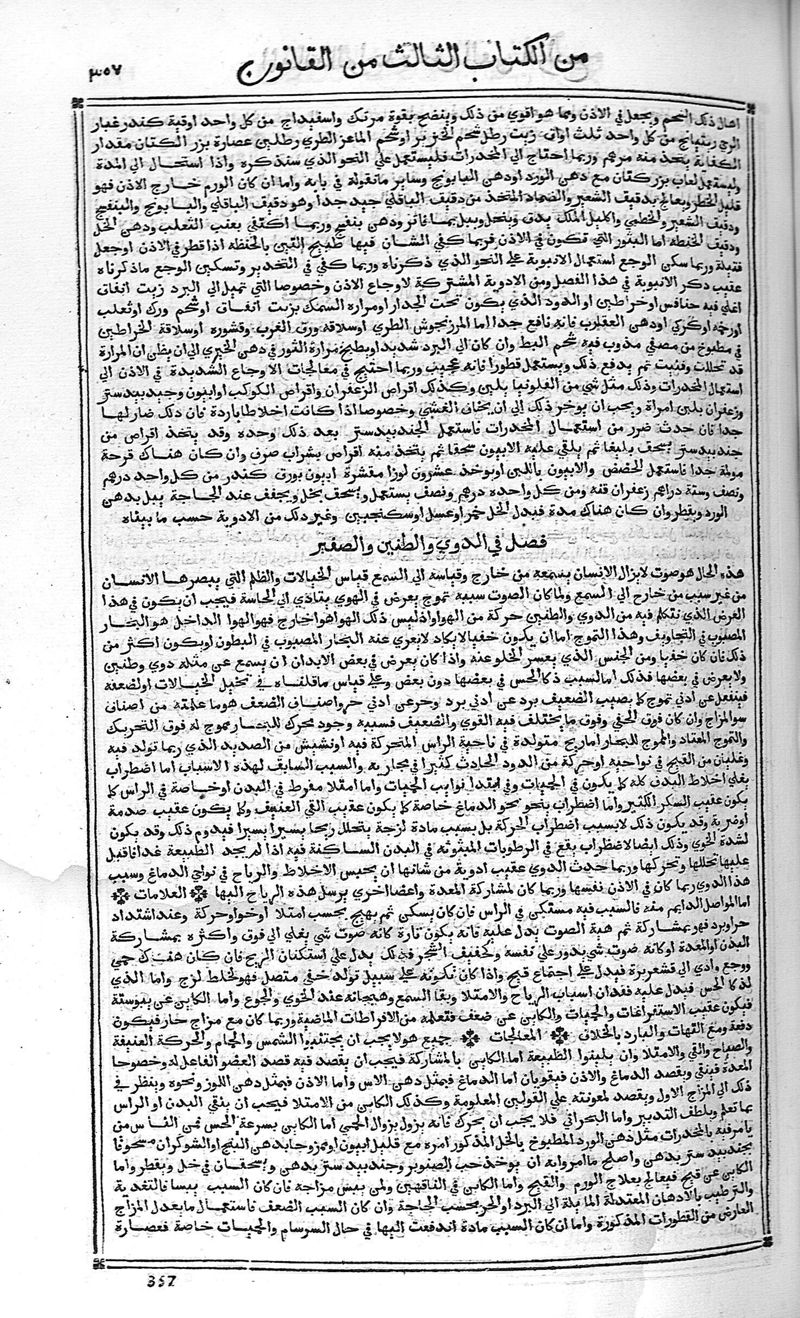 من الكتاب الثالث من القانون
٣٥٧
اهال ذلك الشحم ويجعل في الاذن ومما هو اقوي من ذلك وينضج بقوة مرتك واسفيداج من كل واحد اوقية كندر غبار
الري ريتيانج من كل واحد ثلث اواق زيت رطل شحم الخنزير او شحم الماعز الطري رطلين عصارة بزر الكتان مقدار
الكفاية يتخذ منه مرهم وربما احتاج الي المخدرات فليستعمل علي النحو الذي سنذكره واذا استحال الي المدة
وليستعمل لعاب بزر كتان مع دهن الورد او دهن البابونج وساير ما نقوله في بابه واما ان كان الورم خارج الاذن فهو
قليل الخطر ويعالج بدقيف الشعير والضماد المتخذ من دقيف الباقلي جيد جدا وهو دقيف الباقلي والبابونج والبنفسج
ودقيف الشعير والخطمي واكليل الملك يدق وينخل ويبل بماء فاتر ودهن بنفسج وربما اكتفي بعنب الثعلب ودهن الخل
ودقيف الحنطة اما البثور التي تكون في الاذن فربما كفي الشان فيها طبيخ التين بالحنطة اذا قطر في الاذن او جعل
فتيلة وربما سكن الوجع استعمال الانبوبة علي النحو الذي ذكرناه وربما كفي في التخدير وتسكين الوجع ما ذكرناه
عقيب ذكر الانبوبة في هذا الفصل ومن الادوية المشتركة لاوجاع الاذن وخصوصا التي تميل الي البرد زيت انفاق
اغلي فيه خنافس او خراطين او الدود الذي يكون تحت الجدار او مرارة السمك بزيت انفاق او شحم ورك او ثعلب
اورخمه او كركي او دهن العقارب فانه نافع جدا اما المرزنجوش الطري او سلاقة ورق الغرب وقشوره او سلاقة الخراطين
في مطبوخ من مصفي مذوب فيه شحم البط وان كان الي البرد شديد او يطبخ مرارة الثور في دهن الخيري الي ان يظن ان المرارة
قد تحللت وفنيت ثم يدفع ذلك ويستعمل قطورا فانه عجيب وربما احتيج في معالجات الاوجاع الشديدة في الاذن الي
استعمال المخدرات وذلك مثل شي من الفلونيا بلبن وكذلك اقراص الزعفران واقراص الكوكب او ابيون وجندبيدستر
وزعفران بلبن امراة ويجب ان يوخر ذلك الي ان يخاف الغشي وخصوصا اذا كانت اخلاطا باردة فان ذلك ضار لها
جدا فان حدث ضرر من استعمال المخدرات فاستعمل الجندبيدستر بعد ذلك وحده وقد يتخذ اقراص من
جندبيدستر يسحق بليغا ثم يلقي عليه الابيون سحقا ثم يتخذ منه اقراص بشراب صوف وان كان هناك قرحة
مولمة جدا فاستعمل الحضض والابيون باللبن او يوخذ عشرون لوزا مقشرة ابيون بورق كندر من كل واحد درهم
ونصف وستة دراهم زعفران قنه ومن كل واحده درهم ونصف يستعمل ويسحق بخل ويجفف عند الحاجة يبل بدهن
الورد ويقطر وان كان هناك مدة فبدل الخل خمر او عسل او سكنجبين وغير ذلك من الادوية حسب ما بيناه
فصل في الدوي والطنين والصفير
هذه الحال هو صوت لا يزال الانسان يسمعه من خارج وقياسه الي السمع قياس الخيالات والظلم التي يبصرها الانسان
من غير سبب من خارج الي السمع ولما كان الصوت سببه تموج يعرض في الهوي يتادي الي الحاسة فيجب ان يكون في هذا
العرض الذي نتكلم فيه من الدوي والطنين حركة من الهوا واذ ليس ذلك الهوا هوا خارج فهو الهوا الداخل هو البخار
المصبوب في التجاويف وهذا التموج اما ان يكون خفيا لا يكاد لا يعري عنه البخار المصبوب في البطون او يكون اكثر من
ذلك فان كان خفيا ومن الجنس الذي يعسر الخلو عنه واذا كان يعرض في بعض الابدان ان يسمع عن مثله دوي وطنين
ولا يعرض في بعضها فذلك اما لسبب ذكا الحس في بعضها دون بعض وعلي قياس ما قلناه في تخيل الخيالات او لضعفه
فينفعل عن ادني تموج كما يصيب الضعيف برد عن ادني برد وحر عن ادني حر واصناف الضعف هو ما علمته من اصناف
سو المزاج وان كان فوق الخفي وفوق ما يختلف فيه القوي والضعيف فسببه وجود محرك للبخار مموج له فوق التحريك
والتموج المعتاد والمموج للبخار اما ريح متولدة في ناحية الراس المتحركة فيه او نشيش من الصديد الذي ربما تولد فيه
وغليان من القيح في نواحيه او حركة من الدود الحادث كثيرا في مجاريه والسبب السابق لهذه الاسباب اما اضطراب
يغلي اخلاط البدن كله كما يكون في الحميات وفي ابتدا نوايب الحميات واما امتلا مفرط في البدن او خاصة في الراس كما
يكون عقيب السكر الكثير واما اضطراب ينحو نحو الدماغ خاصة كما يكون عقيب القي العنيف وكما يكون عقيب صدمة
او ضربة وقد يكون ذلك لا بسبب اضطراب الحركة بل بسبب مادة لزجة يتحلل ريحا يسيرا يسيرا فيدوم ذلك وقد يكون
لشدة الخوي وذلك ايضا لاضطراب يقع في الرطوبات المبثوثة في البدن الساكنة فيه اذا لم يجد الطبيعة غدا فاقبل
عليها تحللها وتحركها وربما حدث الدوي عقيب ادوية من شانها ان يحبس الاخلاط والرياح في نواي الدماغ وسبب
هذا الدوي ربما كان في الاذن نفسها وربما كان لمشاركة المعدة واعضا اخري يرسل هذه الرياح اليها ✤ العلامات ✤
اما المواصل الدايم منه فالسبب فيه مستكن في الراس فان كان يسكن ثم يهيج بحسب امتلا او خوا وحركة وعند اشتداد
حر او برد فهو بمشاركة ثم هية الصوت يدل عليه فانه يكون تارة كانه صوت شي يغلي الي فوق واكثره بمشاركة
البدن او المعدة او كانه صوت شي يدور علي نفسه وكحفيف الشجر فذلك يدل علي استكنان الريح فان كان هناك حمي
ووجع وادي الي قشعريرة فيدل علي اجتماع قيح واذا كان تكونه علي سبيل تولد خفي متصل فهو لخلط لزج واما الذي
لذكا الحس فيدل عليه فقدان اسباب الرياح والامتلا وبقا السمع وهيجانه عند الخوي والجوع واما الكاين عن يبوسة
فيكون عقيب الاستفراغات والحميات والكاين عن ضعف فتعلمه من الافراطات الماضية وربما كان مع مزاج حار فيكون
دفعة ومع القهات والبارد بالخلاف ✤ المعالجات ✤ جميع هولا يجب ان يجتنبوا الشمس والحمام والحركة العنيفة
والصياح والقي والامتلا وان يلينوا الطبيعة اما الكاين بالمشاركة فيجب ان يقصد فيه قصد العضو الفاعل له وخصوصا
المعدة فينقي ويقصد الدماغ والاذن فيقويان اما الدماغ فبمثل دهن الاس واما الاذن فبمثل دهن اللوز ونحوه وينظر في
ذلك الي المزاج الاول ويقصد لمعونته علي القولين المعلومة وكذلك الكاين من الامتلا فيجب ان ينقي البدن او الراس
بما تعلم ويلطف التدبير واما البحراني فلا يجب ان يحرك فانه يزول بزوال الحمي اما الكاين بسرعة الحس فمن الناس من
يامر فيه بالمخدرات مثل دهن الورد المطبوخ بالخل المذكور امره مع قليل ابيون وممزوجا بدهن البنج او الشوكران مسحوقا
بجندبيدستر بدهن واصلح ما امروا به ان يوخذ حب الصنوبر وجندبيدستر بدهن ويسحقان في خل ويقطر واما
الكاين عن قيح فيعالج بعلاج الورم والقيح واما الكاين في الناقهين ولمن يبس مزاجه فان كان السبب يبسا فالتغذية
والترطيب بالادهان المعتدلة المايلة الي البرد او الحر بحسب الحاجة وان كان السبب الضعف فاستعمال ما يعدل المزاج
العارض من القطورات المذكورة واما ان كان السبب مادة اندفعت اليها في حال السرسام والحميات خاصة فعصارة
357